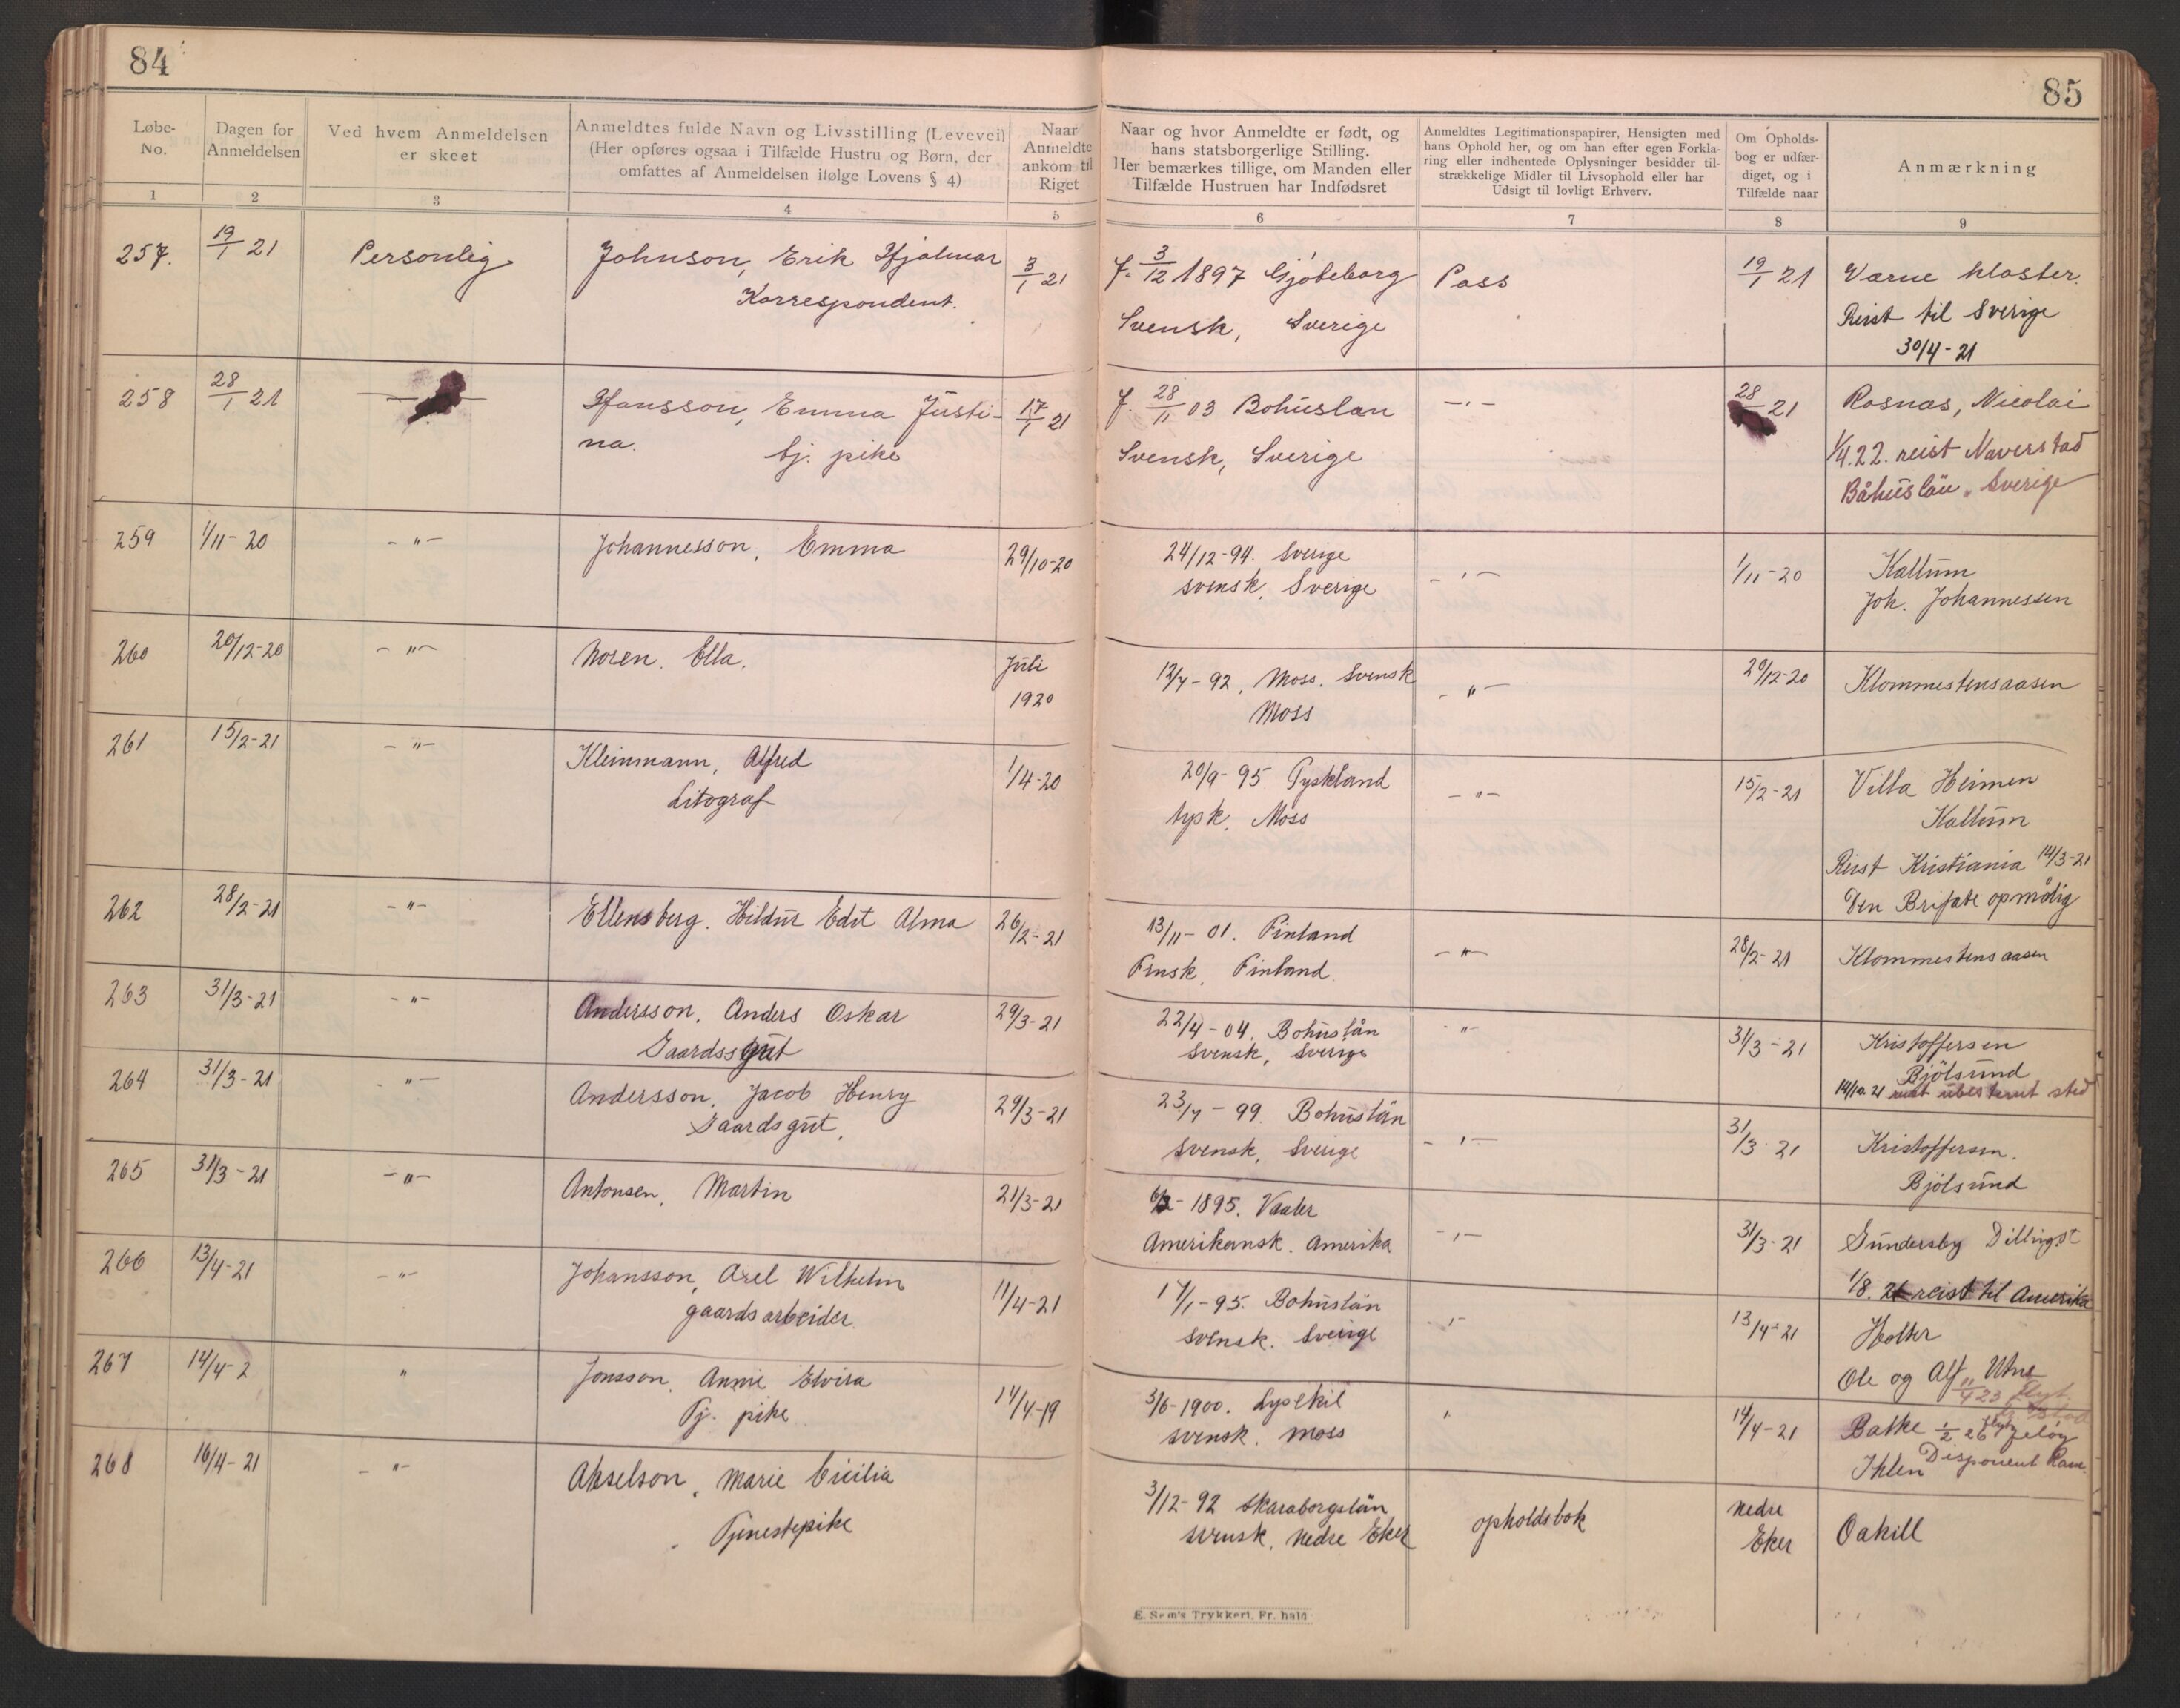 84
85
Løbe-No.
Dagen for Anmeldelsen
Ved hvem Anmeldelsen er skeet
Anmeldtes fulde Navn og Livsstilling (Levevei)
(Her opføres ogsaa i Tilfælde Hustru og Børn, der
omfattes af Anmeldelsen ifølge Lovens § 4)
Naar Anmeldte ankom til Riget
Naar og hvor Anmeldte er født, og
hans statsborgerlige Stilling.
Her bemærkes tillige, om Manden eller
Tilfælde Hustruen har Indfødsret
Anmeldtes Legitimationspapirer, Hensigten med
hans Ophold her, og om han efter egen Forkla-
ring eller indhentede Oplysninger besidder til-
strækkelige Midler til Livsophold eller har
Udsigt til lovligt Erhverv.
Om Opholds-
bog er udfær-
diget, og i
Tilfælde naar
Anmærkning
1 2 3 4 5 6 7 8 9
257. 19/1 21 Personlig Johnson, Erik Hjalmar 3/1 21 f. 3/12 1897 Gjøteborg Pass 19/1 21 Varne kloster.
Korrespondent. Svensk, Sverige Reist til Sverige
30/4-21
258 28/1 21 Hansson, Emma Justi- 17/1 21 f. 28/11 03 Bohuslan -"- 28 21 Rosnas, Nicolai
na. tj. pike Svensk, Sverige 1/4.22. reist Naverstad
Båhuslän. Sverige
259 1/11-20 -"- Johannesson, Emma 29/10-20 24/12-94. Sverige -"- 1/11-20 Kallum
svensk. Sverige Joh. Johannessen
260 20/12-20 -"- Noren. Ella. Juli 1920 12/7-92, Moss. Svensk -"- 20/12-20 Klommestensaasen
Moss
261 15/2-21 -"- Kleinmann, Alfred 1/4-20 20/9-95 Tyskland -"- 15/2-21 Villa Heimen
Litograf tysk. Moss Kallum
Reist Kristiania 14/3-21
Den
262 28/2-21 -"- Ellensberg. Hildur Edit Alma 26/2-21 13/11-01. Finland -"- 28/2-21 Klommestensaasen
Finsk. Finland.
263 31/3-21 -"- Andersson. Anders Oskar 29/3-21 22/4-04. Bohuslän -"- 31/3-21 Kristoffersen
Gaardsgut Svensk, Sverige Bjölsund
14/10 21 reist ubestemt sted
264 31/3-21 -"- Andersson, Jacob Henry 29/3-21 23/7-99. Bohuslän -"- 31/3 21 Kristoffersen.
Gaardsgut, svensk, Sverige Bjölsund
265 31/3-21 -"- Antonsen, Martin 21/3-21 1895. Vaaler -"- 31/3-21 Gundersby Dillingst
Amerikansk. Amerika 1/8. 21 reist til Amerika
266 13/4-21 -"- Johansson, Axel Wilhelm 11/4-21 17/1-95. Bohuslän -"- 13/4-21 Holter
gaardsarbeider. svensk. Sverige Ole og Alf Utne
11/4 23 flyt.
267 14/4-2 " Jonsson, Annie Elvira 14/4-19 3/6-1900. Lysekil " 14/4-21 Bakke 1/2 26 Jeløy
Tj. pike svensk. Moss Ihlen Disponent
268 16/4-21 -"- Akselson, Marie Cicilia 3/12-92 Skaraborgslän opholdsbok nedre Eker Oakill
Tjenestepike svensk. nedre Eker
E. Sem's Trykkeri. Fr.hald